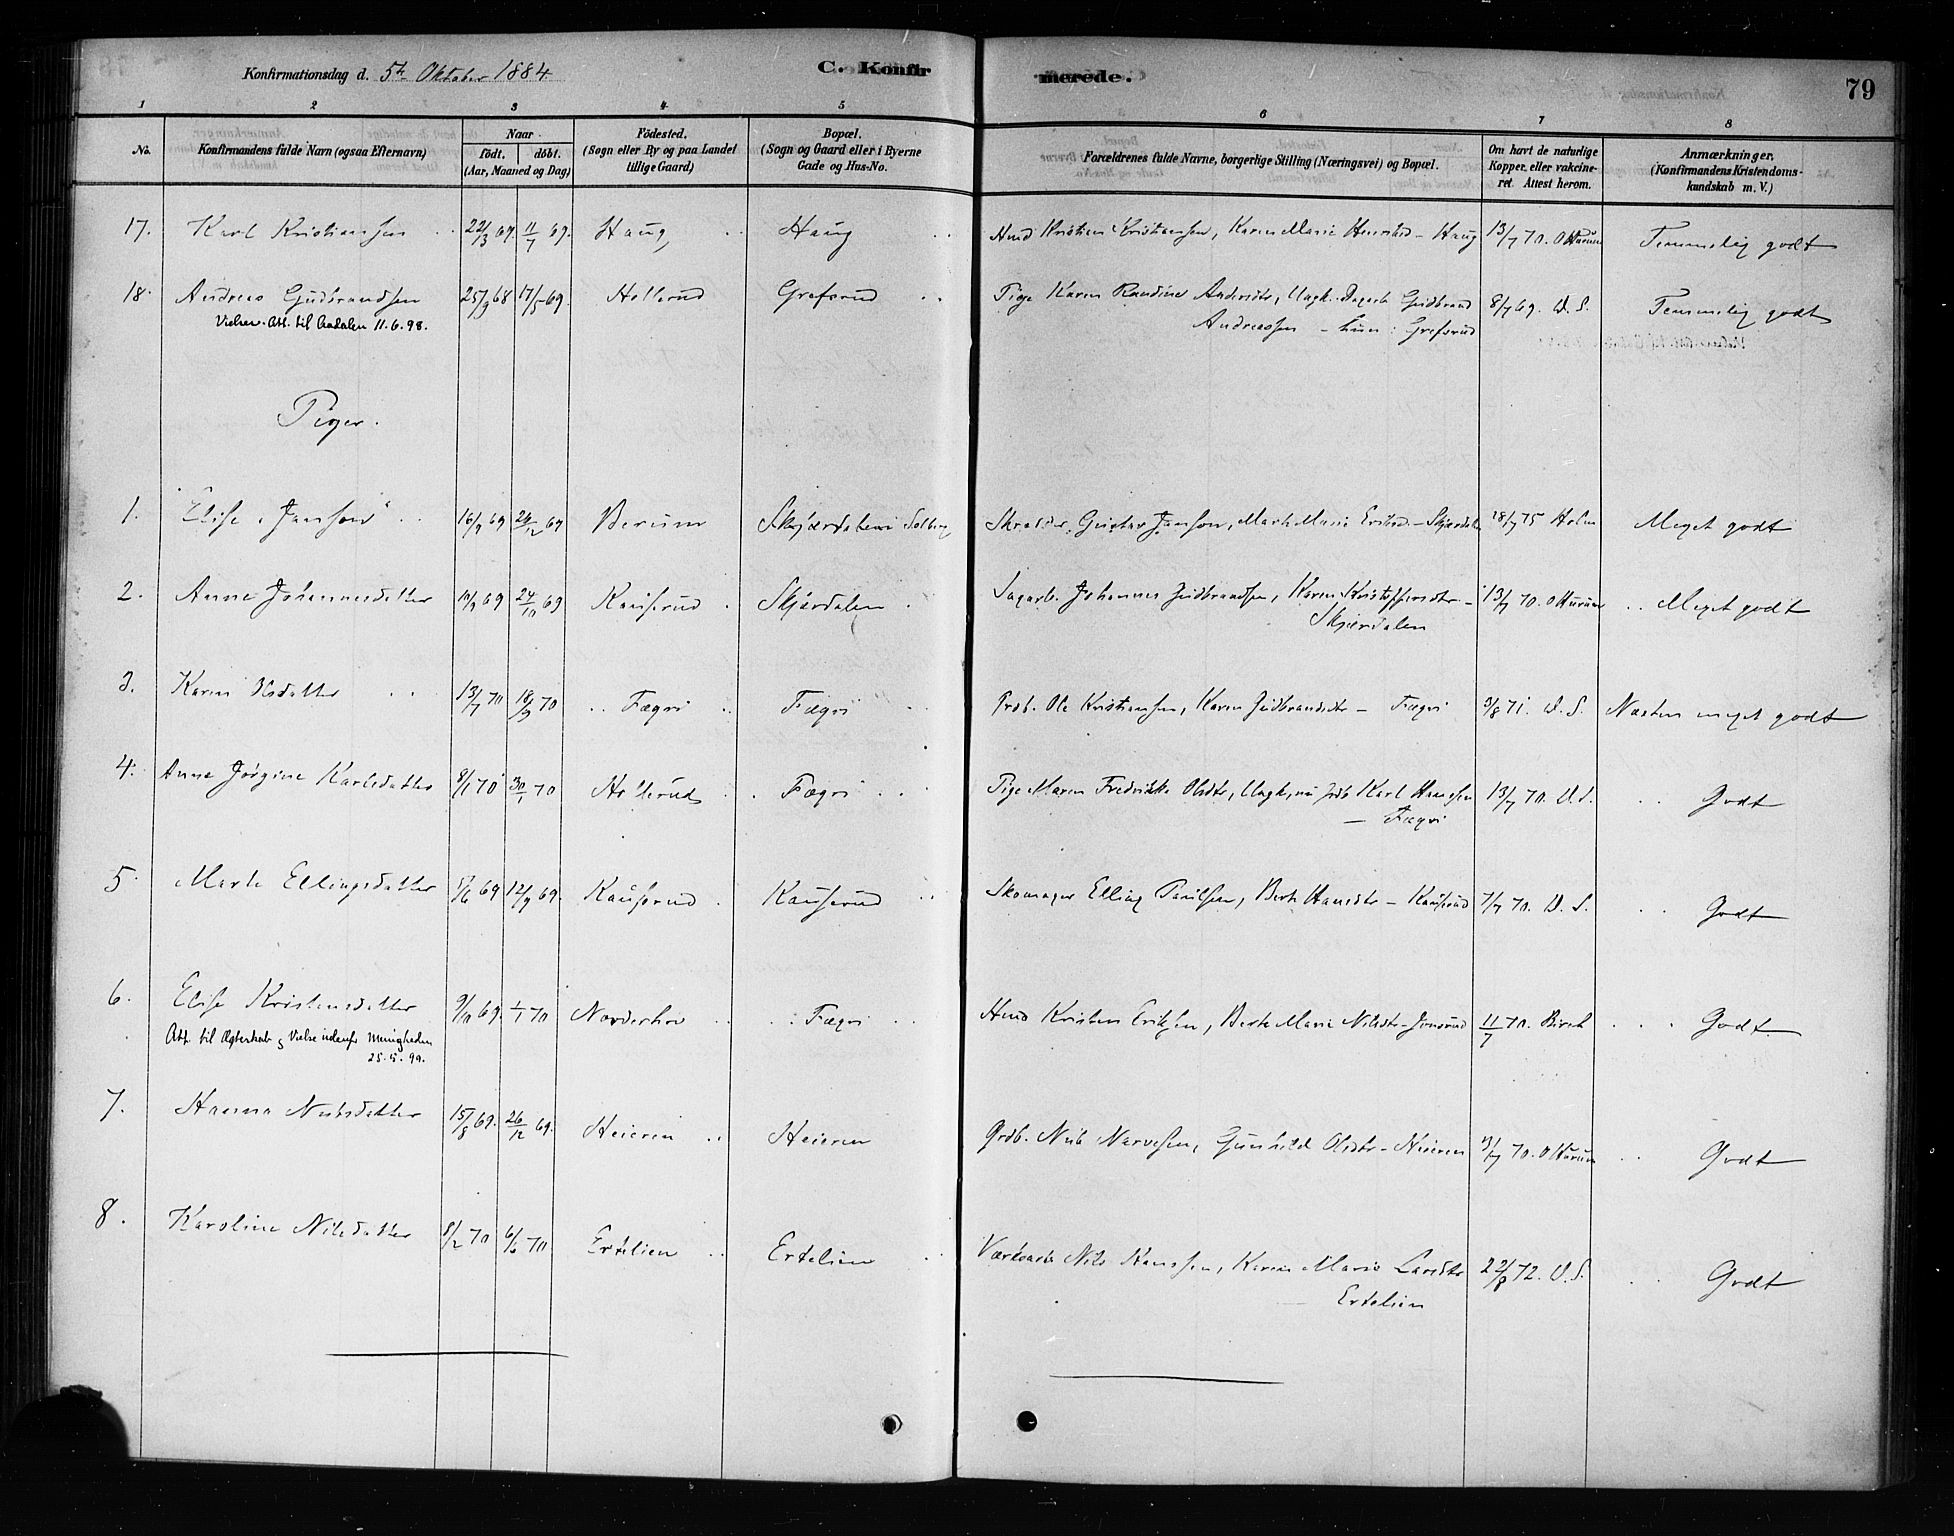 Konfirmationsdag d. 5te Oktober 1884
C. Konfirmerede.
79
1 2 3 4 5 6 7 8
No.
Konfirmandens fulde Navn (ogsaa Efternavn)
Naar
født. døbt.
(Aar, Maaned og Dag)
Fødested.
(Sogn eller By og paa Landet
tillige Gaard)
Bopæl.
(Sogn og Gaard eller i Byerne
Gade og Hus-No.
Forældrenes fulde Navne, borgerlige Stilling (Næringsvei) og Bopæl.
Om havt de naturlige
Kopper, eller vakcine-
ret. Attest herom.
Anmærkninger.
(Konfirmandens Kristendoms-
kundskab m. V.)
17. Karl Kristiansen 22/3 69. 11/7 69. Haug Haug Hmd Kristian Kristiansen, Karen Marie - Haug 13/7 70. O Hurum Temmelig godt
18. Andreas Gudbrandsen 25/9 68 17/5 69. Hollerud Grefsrud Pige Karen Randine Andersdtr, Ungk. Gudbrand 8/7 69. D. S. Temmelig godt
Vielses-Att. til Aadalen 11.6.98.
Andreassen - hun: Grefsrud
Piger.
1. Elise Janson 16/9 69 26/12 69 Berum Skjærdalen Solberg Skrædder Gustav Janson, Marthe Marie - Skjærdalen 18/7 75 Holm Meget godt
2. Anne Johannesdatter 10/9 69 24/10 69 Kauserud Skjærdalen Sagarb. Johannes Gudbrandsen, Karen Kristoffersdtr - 13/7 70. O Hurum Meget godt
Skjærdalen
3. Karen Olsdatter 13/7 70 18/9 70 Fægri Fægri Grdb. Ole Kristiansen, Karen Gudbrandsdtr - Fægri 9/8 71. D. S. Næsten meget godt
4. Anne Jørgine Karlsdatter 8/1 70 30/1 70 Hollerud Fægri Pige Maren Fredrikke Olsdtr, Ungk, nu Grdb Karl Hansen 13/7 70. D. S. Godt
- Fægri
5. Marte Ellingsdatter 17/6 69 12/9 69. Kauserud Kauserud Skomager Elling Paulsen, Berte Hansdtr - Kauserud 7/7 70. D. S. Godt
6. Elise Kristensdatter 9/10 69. 1/1 70 Norderhov Fægri Hmd Kristen Eriksen, Berte Marie Nilsdtr - Jonsrud 11/7 70. Birch Godt
Att. til Ægteskab og Vielse udenfor Menigheden
25.5.99.
7. Hanna Nilsdatter 15/8 69. 26/12 69. Heieren Heieren Grdb. Nils Narvesen, Gunhild Olsdtr - Heieren 13/7 70. O Hurum Godt
8. Karoline Nilsdatter 8/2 70 6/6 70 Ertelien Ertelien Værksarb Nils Hansen, Karen Marie Larsdtr 22/8 72. D. S. Godt
Ertelien